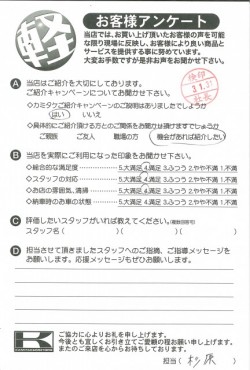 軽
お客様アンケート
当店では、お買い上げ頂いたお客様の声を可能
な限り現場に反映し、お客様により良い商品と
サービスを提供する事に努めています。
大変お手数ですが是非お声をお聞かせ下さい。
A 当店はご紹介を大切にしております。
ご紹介キャンペーンについてお聞かせ下さい
<カミタケご紹介キャンペーンのご説明はありましたでしょうか
はい いいえ
<具体的にご紹介頂ける方とのご関係をお聞かせ頂けますでしょうか
ご親族 ご友人 職場の方 機会があれば紹介したい
B 当店を実際にご利用になった印象をお聞かせ下さい。
◇総合的な満足度 5.大満足 4.満足 3.ふつう 2.やや不満 1.不満
◇スタッフの対応 5.大満足 4.満足 3.ふつう 2.やや不満 1.不満
◇お店の雰囲気、清掃 5.大満足 4.満足 3.ふつう 2.やや不満 1.不満
◇納車時のお車の状態 5.大満足 4.満足 3.ふつう 2.やや不満 1.不満
C 評価したいスタッフがいれば教えてください。(複数回答可)
スタッフ名( )( )( )
D 担当させて頂きましたスタッフへのご指摘、ご指導メッセージを
お願いします。応援メッセージもぜひお願いします。
K
ご協力に心よりお礼を申し上げます。
今後とも宜しくお引き立てご愛顧の程お願い申し上げます。
またのご来店を心からお待ちしております。
担当( 杉原 )